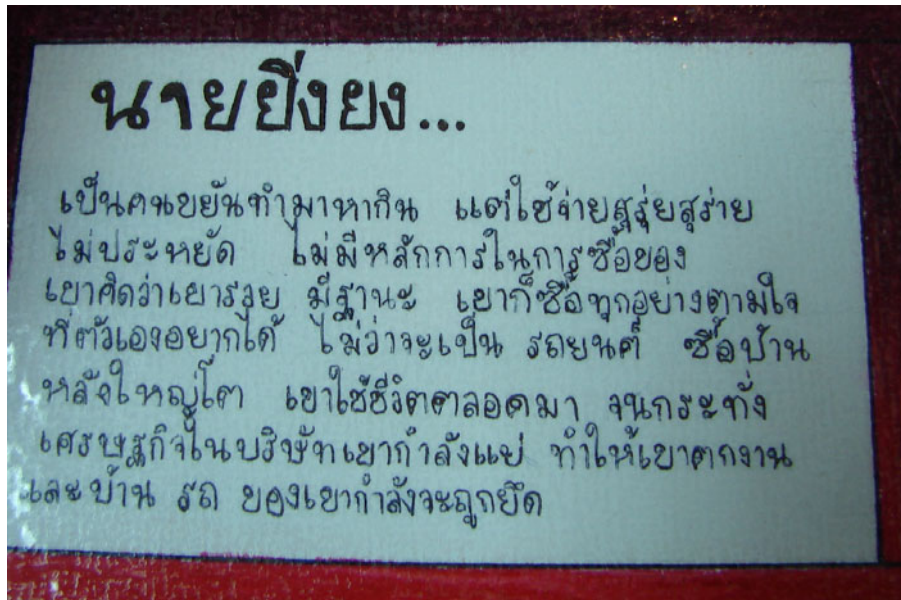 นายยิ่งยง...
เป็นคนขยันทำมาหากิน แต่ใช้จ่ายสุรุ่ยสุร่าย
ไม่ประหยัด ไม่มีหลักการในการซื้อของ
เขาคิดว่าเขารวย มีฐานะ เขาก็ซื้อทุกอย่างตามใจ
ที่ตัวเองอยากได้ ไม่ว่าจะเป็น รถยนต์ ซื้อบ้าน
หลังใหญ่โต เขาใช้ชีวิตตลอดมา จนกระทั่ง
เศรษฐกิจในบริษัทเขากำลังแย่ ทำให้เขาตกงาน
และบ้าน รถ ของเขากำลังจะถูกยึด